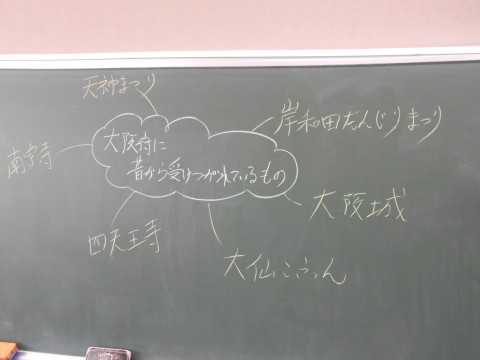 天神まつり
岸和田だんじりまつり
大阪府に
昔から受けつがれているもの
南宗寺
大阪城
四天王寺
大仙こふん